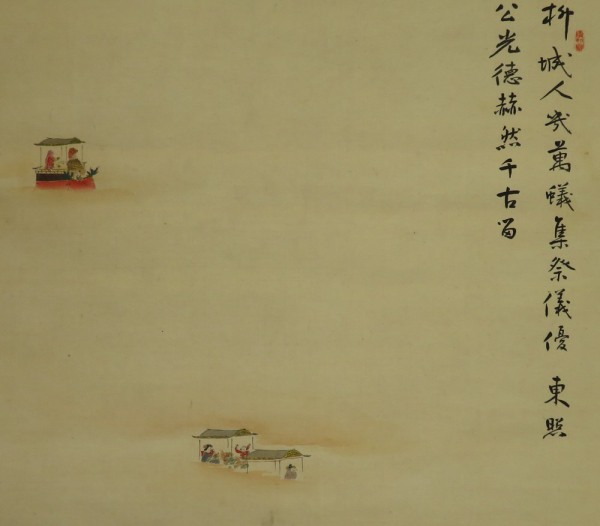 柳城人幾萬蟻集祭儀優 東照
公光德赫然千古留